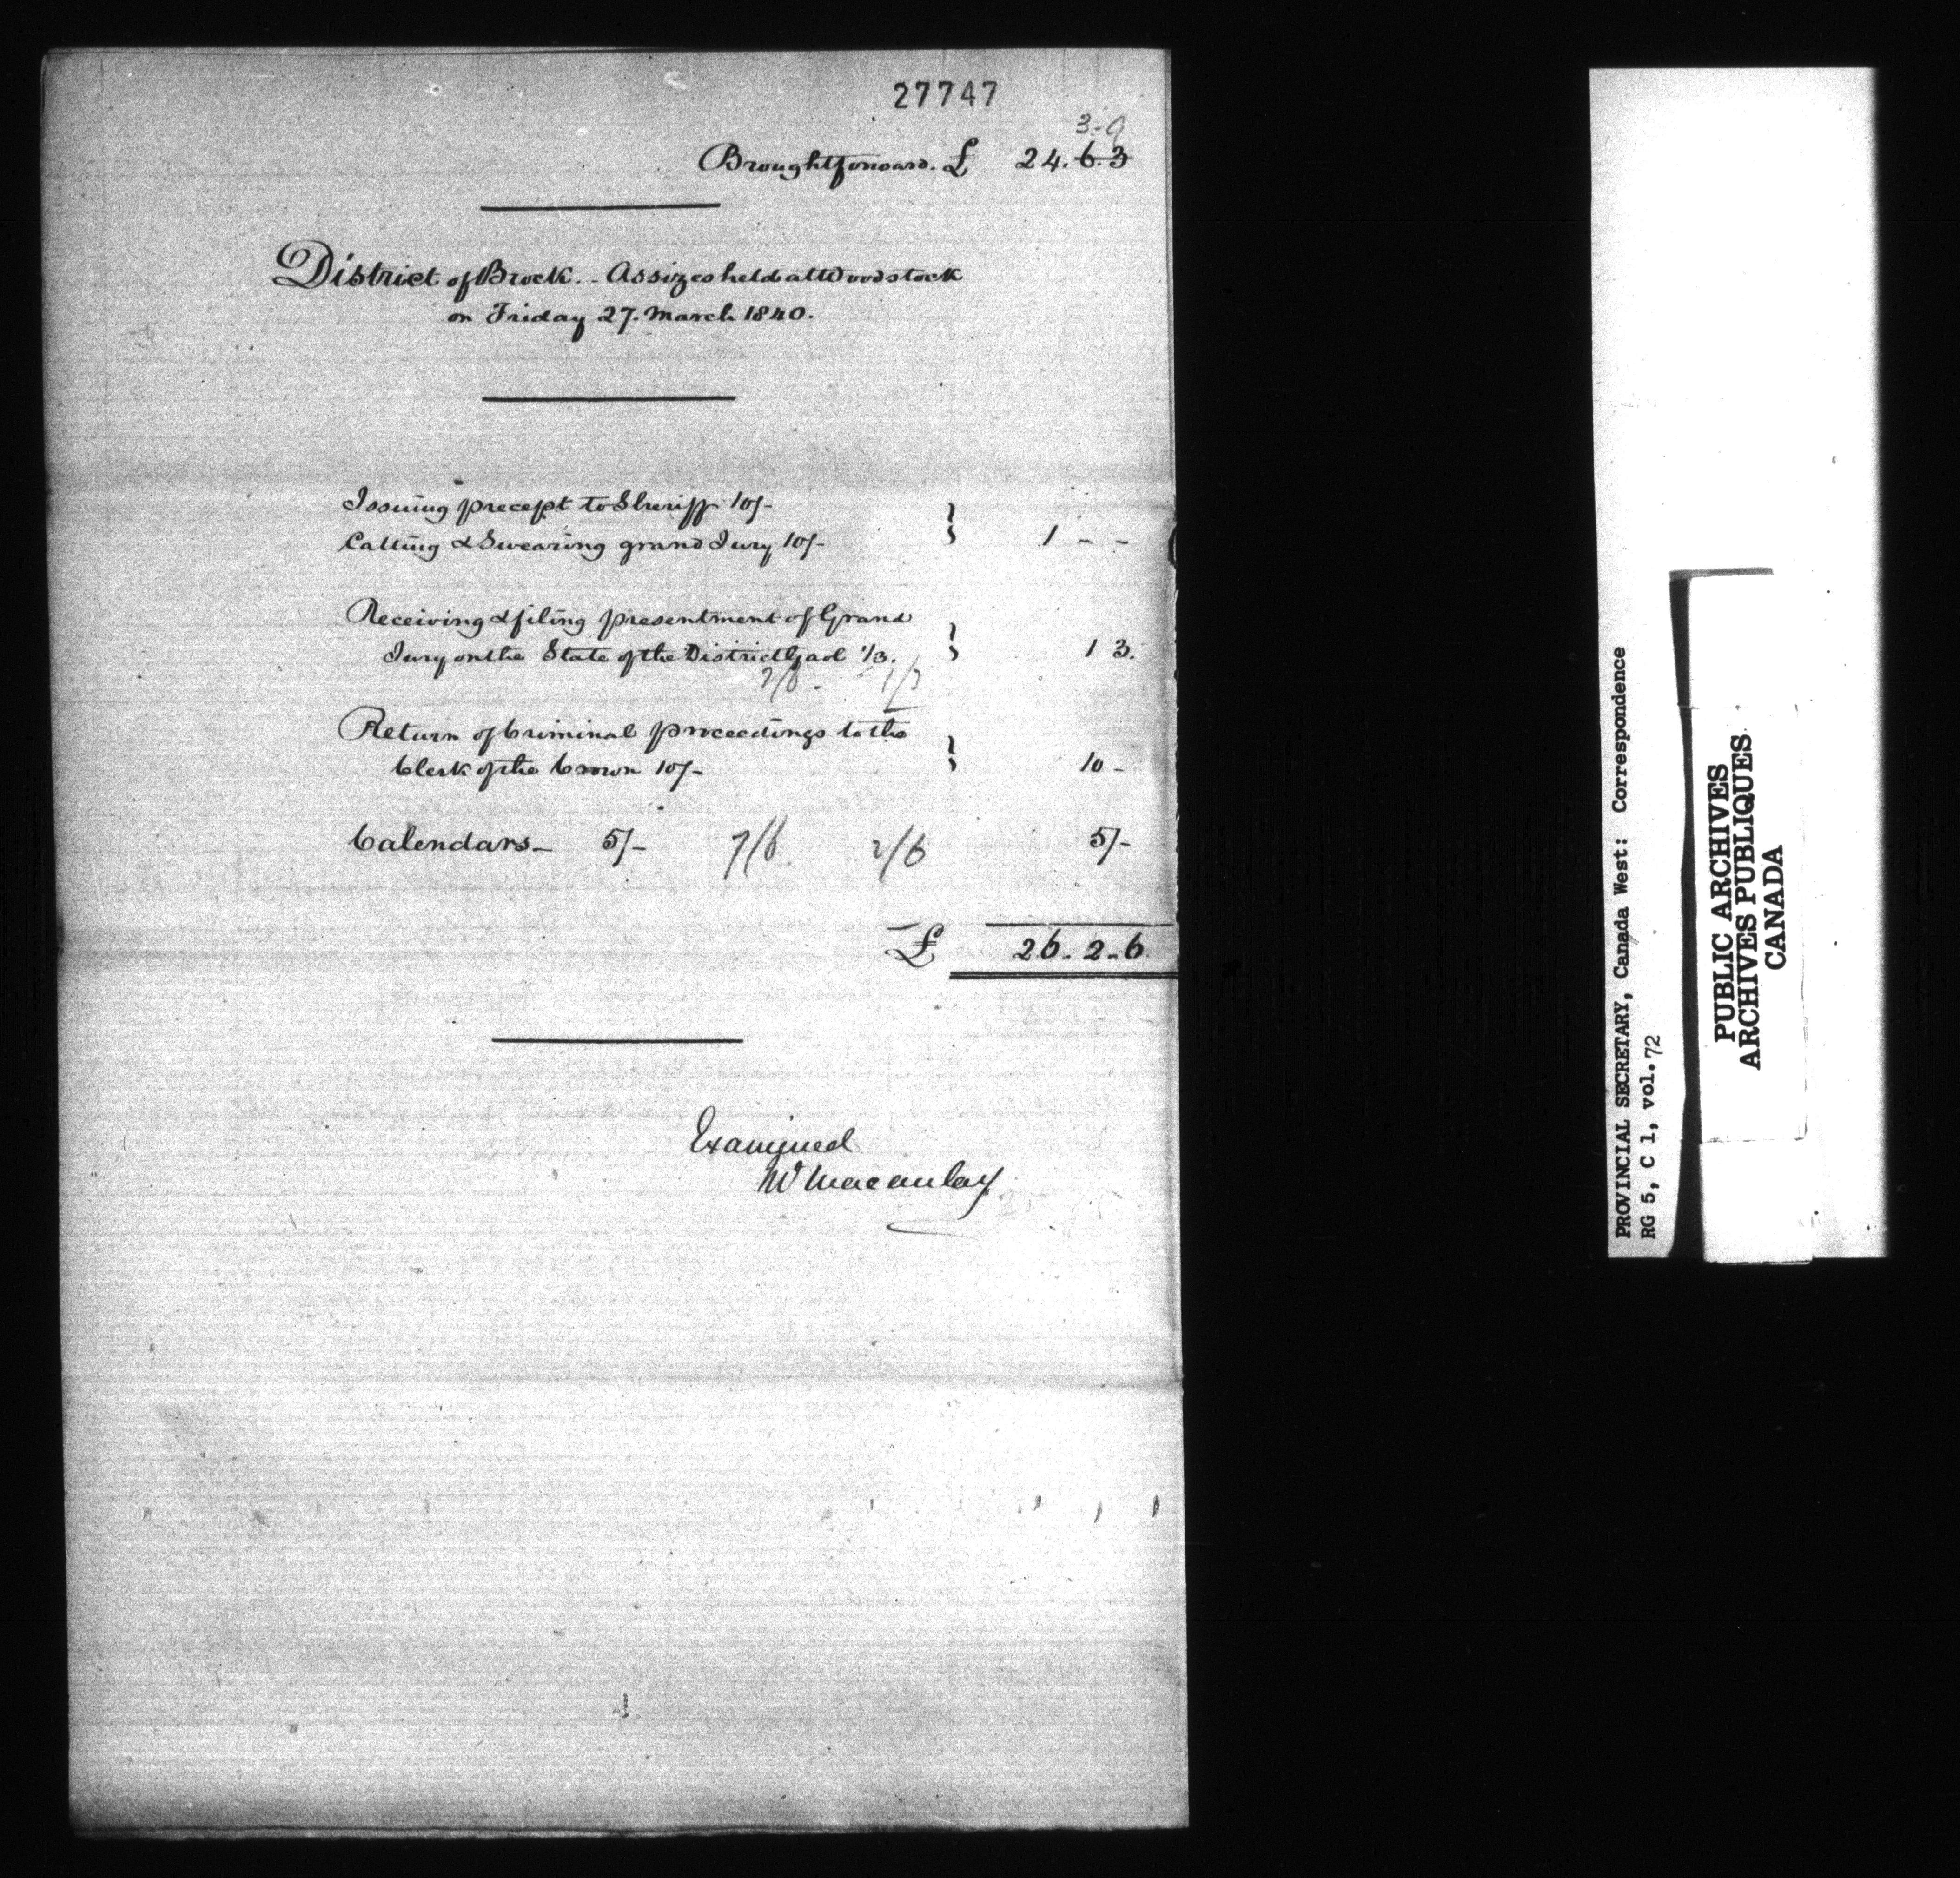 27747
3-9
Brought forward. £ 24. 6. 3
District of Brock. - Assizes held at Woodstock
on Friday 27. March 1840.
Issuing precept to Sheriff 10/-
Calling & Swearing grand Jury 10/- } 1 - -
Receiving & filing presentment of Grand
Jury on the State of the District Gaol 1/3. } 1 3.
Return of Criminal proceedings to the
Clerk of the Crown 10/- } 10 -
Calendars - 5/- 7/6 2/6 5/-
£ 26. 2. 6
Examined
W Macaulay
PROVINCIAL SECRETARY, Canada West: Correspondence
RG 5, C 1, vol. 72
PUBLIC ARCHIVES
ARCHIVES PUBLIQUES
CANADA